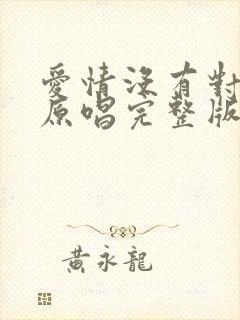 愛情沒有對
原唱完整版
黃永龍